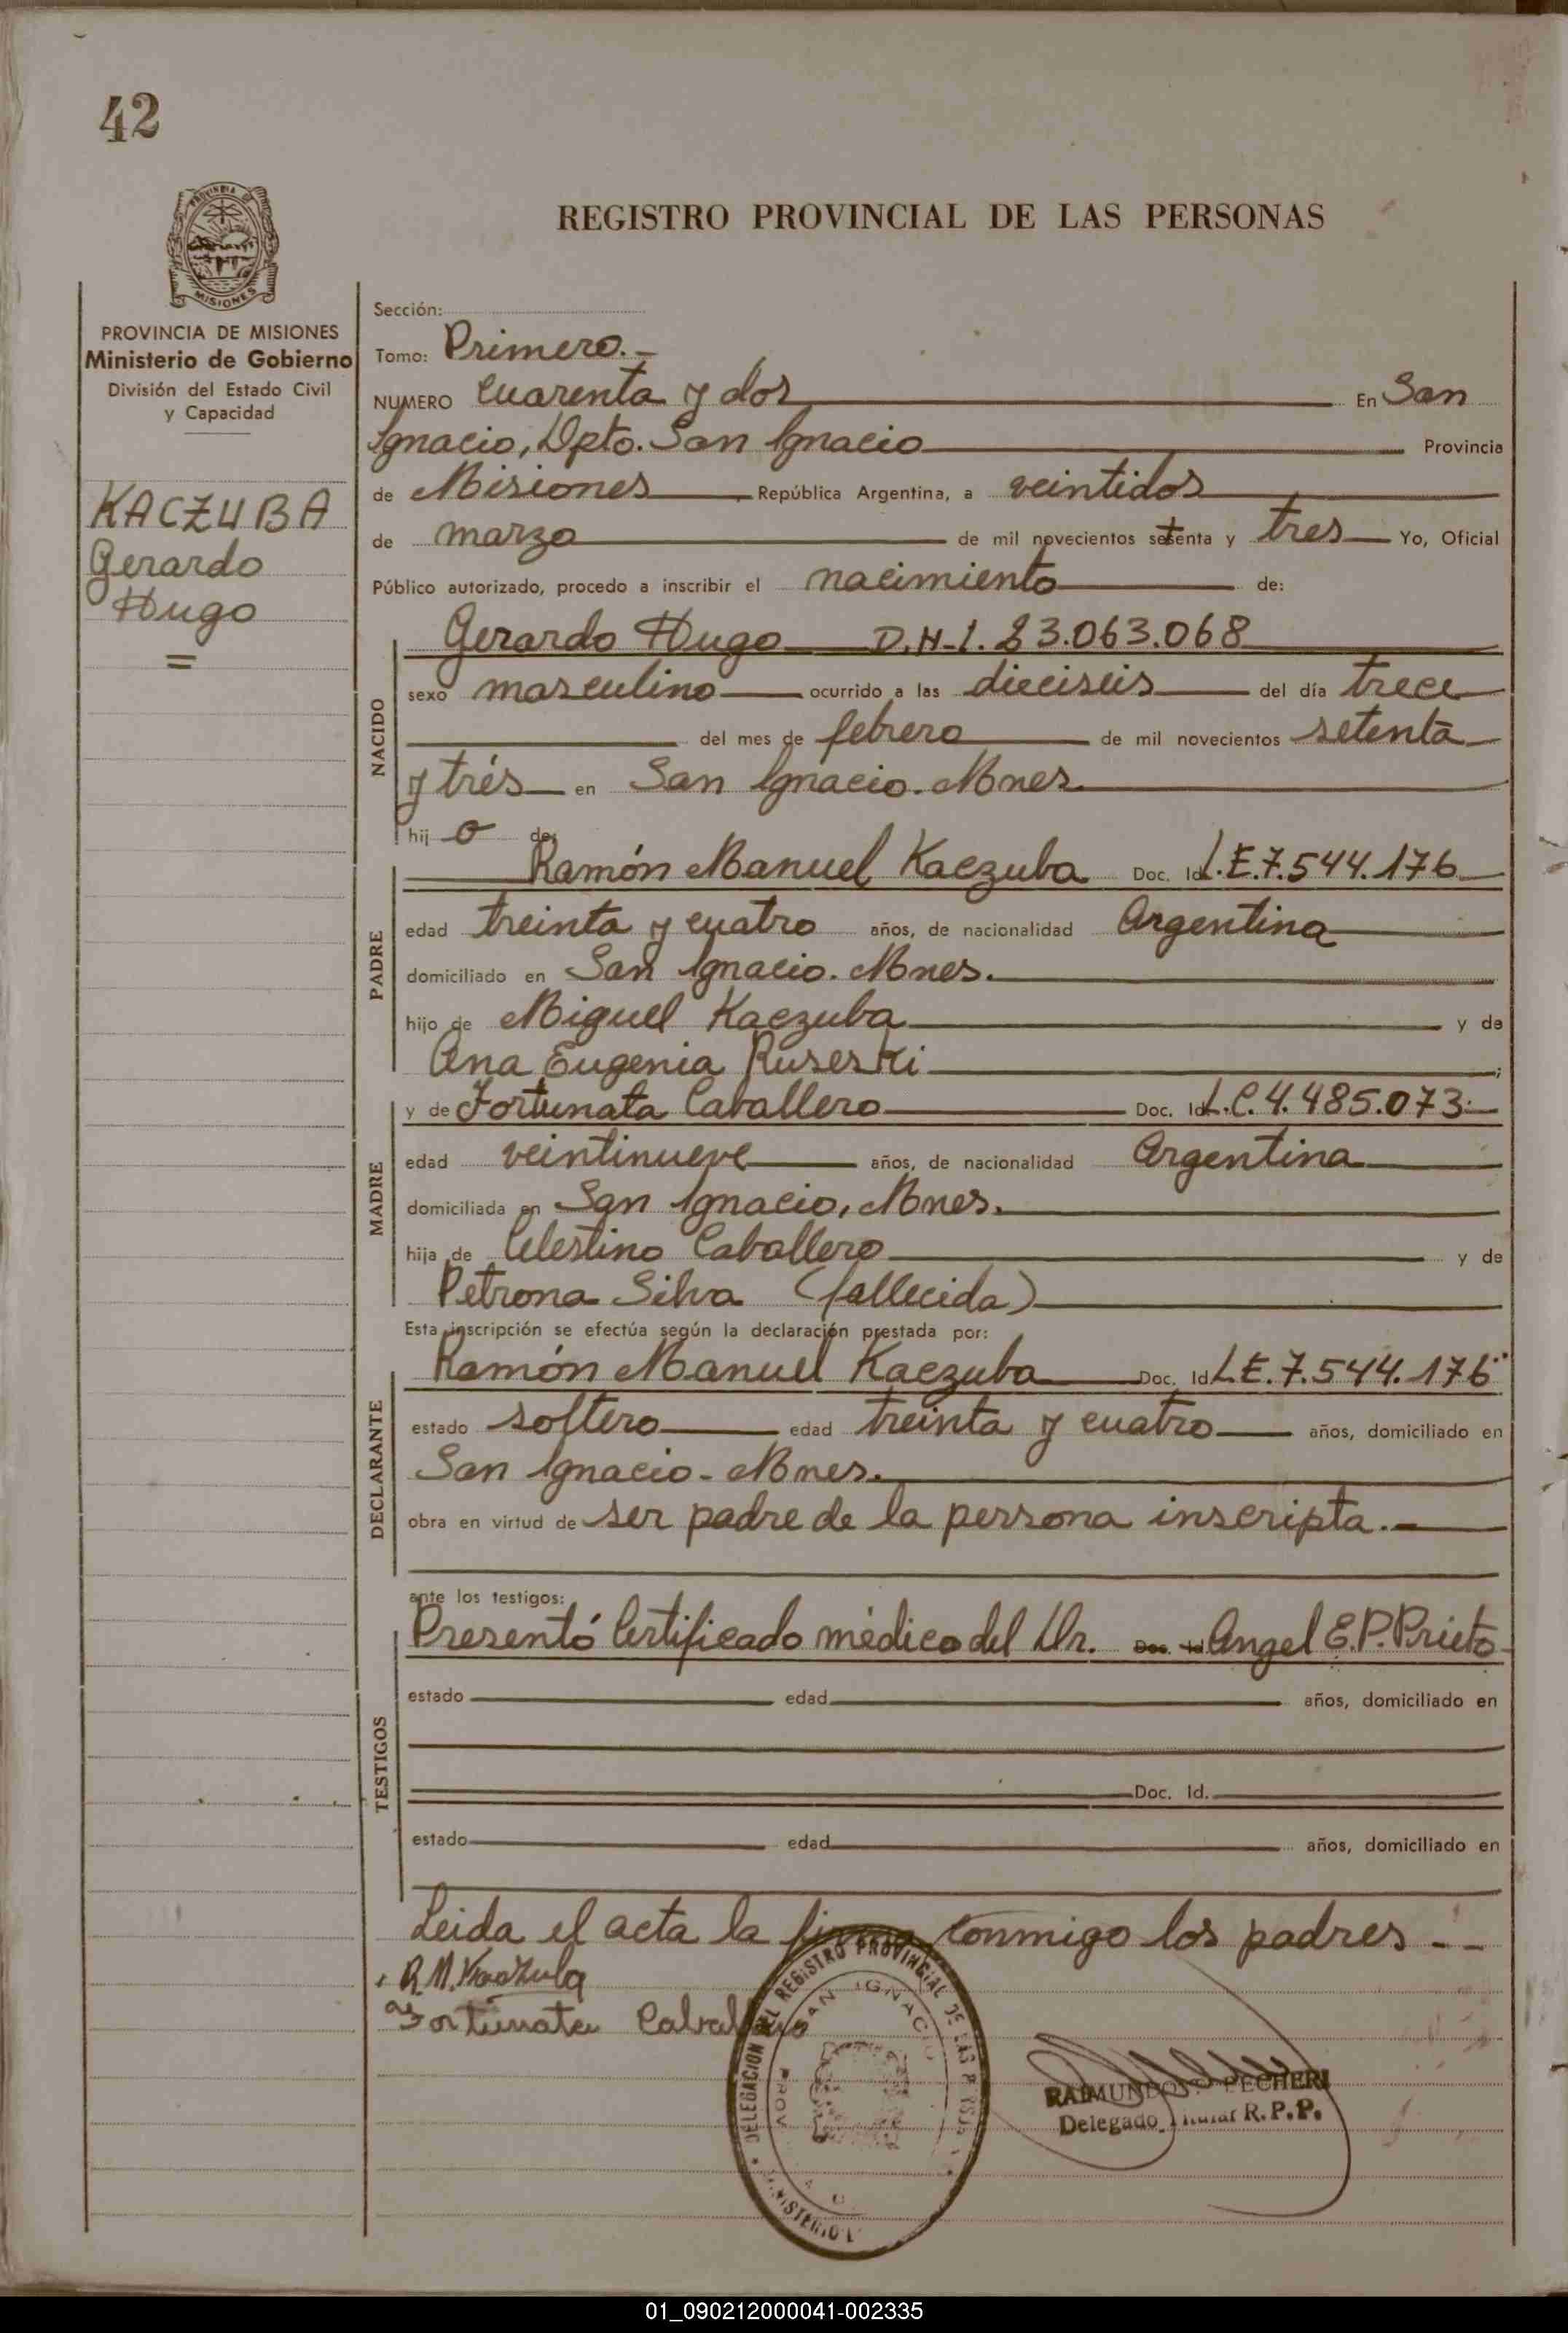 42
PROVINCIA
MISIONES
PROVINCIA DE MISIONES
Ministerio de Gobierno
División del Estado Civil
y Capacidad
KACZUBA
Gerardo
Hugo
=
REGISTRO PROVINCIAL DE LAS PERSONAS
Sección:
Tomo: Primero.-
NUMERO cuarenta y dos En San
Ignacio, Dpto. San Ignacio Provincia
de Misiones República Argentina, a veintidos
de marzo de mil novecientos setenta y tres Yo, Oficial
Público autorizado, procedo a inscribir el nacimiento de:
Gerardo Hugo D.N.I. 23.063.068
NACIDO
sexo masculino ocurrido a las dieciseis del día trece
del mes de febrero de mil novecientos setenta
y trés en San Ignacio. Mnes.
hij o de:
Ramón Manuel Kaczuba Doc. Id. L.E.7.544.176
PADRE
edad treinta y cuatro años, de nacionalidad Argentina
domiciliado en San Ignacio. Mnes.
hijo de Miguel Kaczuba y de
Ana Eugenia Ruseski ;
y de Fortunata Caballero Doc. Id. L.C.4.485.073.-
MADRE
edad veintinueve años, de nacionalidad Argentina
domiciliada en San Ignacio, Mnes.
hija de Celestino Caballero y de
Petrona Silva (fallecida)
Esta inscripción se efectúa según la declaración prestada por:
Ramón Manuel Kaczuba Doc. Id. L.E.7.544.176
DECLARANTE
estado soltero edad treinta y cuatro años, domiciliado en
San Ignacio - Mnes.
obra en virtud de ser padre de la persona inscripta.-
ante los testigos:
Presentó Certificado médico del Dr. Doc. Id. Angel E.P. Prieto
TESTIGOS
estado edad años, domiciliado en
Doc. Id.
estado edad años, domiciliado en
Leida el acta la firman conmigo los padres - -
R.M. Kaczuba
Fortunata Caballero
DELEGACION DEL REGISTRO PROVINCIAL DE LAS
SAN IGNACIO
PROV
MINISTERIO
RAIMUNDO PECHERI
Delegado Titular R.P.P.
01_090212000041-002335